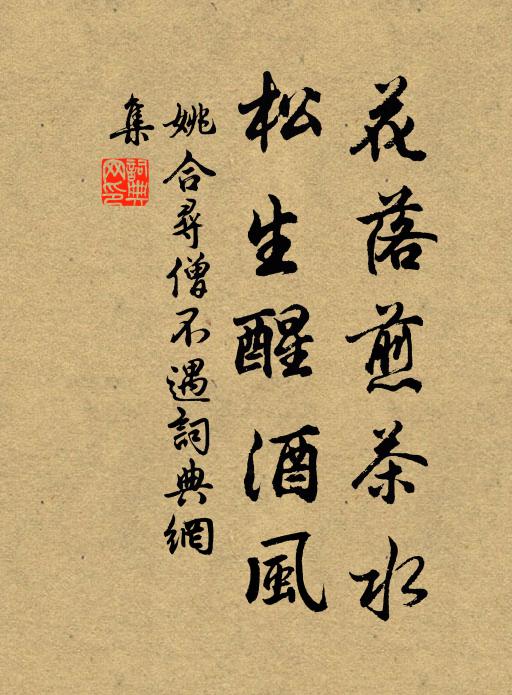 花落煎茶水
松生醒酒風
姚合尋僧不遇詞典網
集
詞典
网印